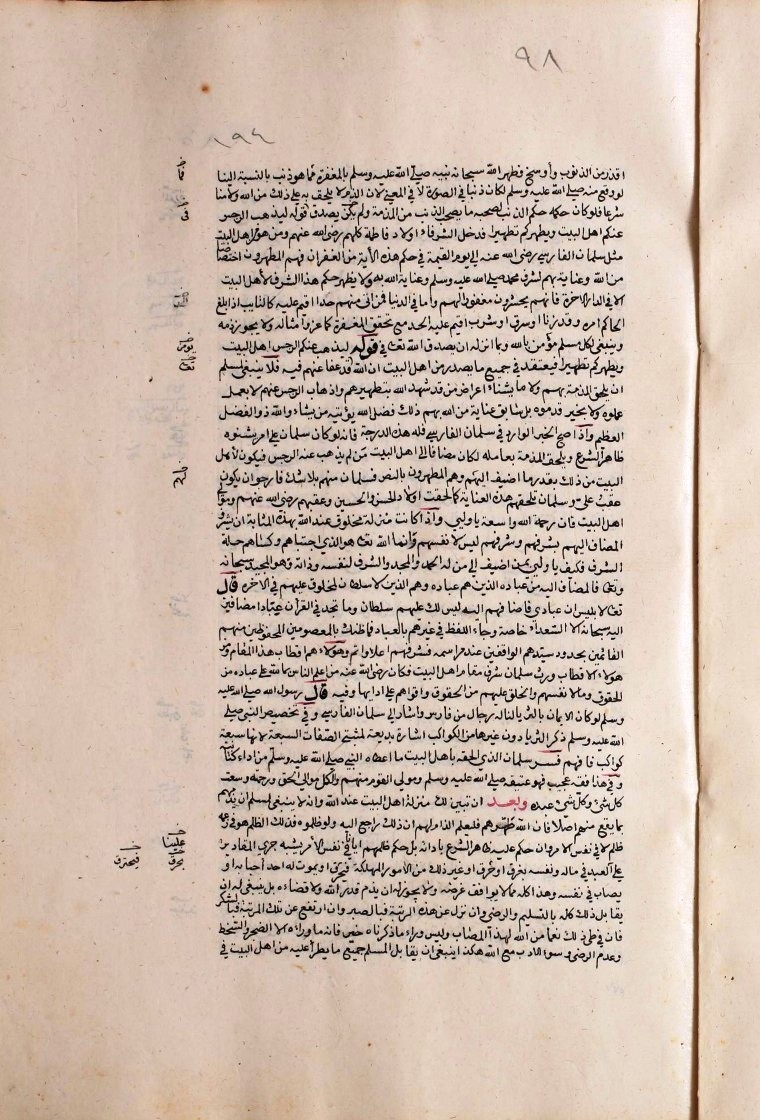 ٩٨
١٩٤
اقذر من الذنوب وأوسخ فطهر الله سبحانه نبيه صلى الله عليه وسلم بالمغفرة مما هو ذنب بالنسبة الينا
لو وقع منه صلى الله عليه وسلم لكان ذنبا في الصورة لا في المعنى لان الذم لا يلحق به على ذلك من الله ولا منا
شرعا فلو كان حكمه حكم الذنب لصحبه ما يصحب الذنب من المذمة ولم يكن يصدق قوله ليذهب الرجس
عنكم اهل البيت ويطهركم تطهيرا فدخل الشرفاء اولاد فاطمة كلهم رضي الله عنهم ومن هو من اهل البيت
مثل سلمان الفارسي رضي الله عنه الى يوم القيمة في حكم هذه الآية من الغفران فهم المطهرون اختصاصا
من الله وعناية بهم لشرف محمد صلى الله عليه وسلم وعناية الله به ولا يظهر حكم هذا الشرف لأهل البيت
الا في الدار الاخرة فانهم يحشرون مغفورا لهم وأما في الدنيا فمن اتى منهم حدا اقيم عليه كالتايب اذا بلغ
الحاكم امره وقد زنا او سرق او شرب اقيم عليه الحد مع تحقق المغفرة كماعز وامثاله ولا يجوز ذمه
وينبغي لكل مسلم مؤمن بالله وبما انزله ان يصدق الله تعالى في قوله ليذهب عنكم الرجس اهل البيت
ويطهركم تطهيرا فيعتقد في جميع ما يصدر من اهل البيت ان الله قد عفا عنهم فيه فلا ينبغي لمسلم
ان يلحق المذمة بهم ولا ما يشنأ اعراض من قد شهد الله بتطهيرهم واذهاب الرجس عنهم لا بعمل
عملوه ولا بخير قدموه بل سابق عناية من الله بهم ذلك فضل الله يؤتيه من يشاء والله ذو الفضل
العظيم واذا صح الخبر الوارد في سلمان الفارسي فله هذه الدرجة فانه لو كان سلمان على امر يشنؤه
ظاهر الشرع ويلحق المذمة بعامله لكان مضافا الى اهل البيت من لم يذهب عنه الرجس فيكون لأهل
البيت من ذلك بقدر ما اضيف اليهم وهم المطهرون بالنص فسلمان منهم بلا شك فارجو ان يكون
عقب علي وسلمان تلحقهم هذه العناية كما لحقت اولاد الحسن والحسين وعقبهم رضي الله عنهم وموالي
اهل البيت فان رحمة الله واسعة يا وليي واذا كانت منزلة مخلوق عند الله بهذه المثابة ان يشرف
المضاف اليهم بشرفهم وشرفهم ليس لانفسهم وانما الله تعالى هو الذي اجتباهم وكساهم حلة
الشرف فكيف يا وليي بمن اضيف الى من له الحمد والمجد والشرف لنفسه وذاته وهو المجيد سبحانه
وتعالى فالمضاف اليه من عباده الذين هم عباده وهم الذين لا سلطان لمخلوق عليهم في الآخره قال
تعالى لابليس ان عبادي فاضافهم اليه ليس لك عليهم سلطان وما تجد في القرآن عبادا مضافين
اليه سبحانه الا السعداء خاصة وجاء اللفظ في غيرهم بالعباد فما ظنك بالمعصومين المحفوظين منهم
القائمين بحدود سيدهم الواقفين عند مراسمه فشرفهم اعلا واتم وهولاء هم اقطاب هذا المقام ومن
هولاء الاقطاب ورث سلمان شرف مقام اهل البيت فكان رضي الله عنه من اعلم الناس بما لله على عباده من
الحقوق وما لانفسهم والخلق عليهم من الحقوق واقواهم على ادايها وفيه قال رسول الله صلى الله عليه
وسلم لو كان الايمان بالثريا لناله رجال من فارس واشار الى سلمان الفارسي وفي تخصيص النبي صلى
الله عليه وسلم ذكر الثريا دون غيرها من الكواكب اشارة بديعة لمثبتي الصفات السبعة لانها سبعة
كواكب فافهم فسر سلمان الذي الحقه باهل البيت ما اعطاه النبي صلى الله عليه وسلم من اداء كتابته
وفي هذا فقه عجيب فهو عتيقه صلى الله عليه وسلم ومولى القوم منهم والكل موالي الحق ورحمته وسعت
كل شيء وكل شيء عبده وبعد ان تبين لك منزلة اهل البيت عند الله وانه لا ينبغي لمسلم ان يذمهم
بما يقع منهم اصلا فان الله طهرهم فليعلم الذام لهم ان ذلك راجع اليه ولو ظلموه فذلك الظلم هو في زعمه
ظلم لا في نفس الامر وان حكم عليه ظاهر الشرع بادائه بل حكم ظلمهم ايانا في نفس الأمر يشبه جري المقادير
على العبد في ماله ونفسه بغرق او حرق او غير ذلك من الأمور المهلكة فيحترق او يموت له احد احبابه او
يصاب في نفسه وهذا كله مما لا يوافق غرضه ولا يجوز له ان يذم قدر الله ولا قضاءه بل ينبغي له ان
يقابل ذلك كله بالتسليم والرضى وان نزل عن هذه المرتبة فبالصبر وان ارتفع عن تلك المرتبة فبالشكر
فان في طي ذلك نعما من الله لهذا المصاب وليس وراء ما ذكرناه خير فانه ما وراءه الا الضجر والتسخط
وعدم الرضى وسوء الادب مع الله هكذا ينبغي ان يقابل المسلم جميع ما يطرأ عليه من اهل البيت في
علينا
بحرق
فيحترق